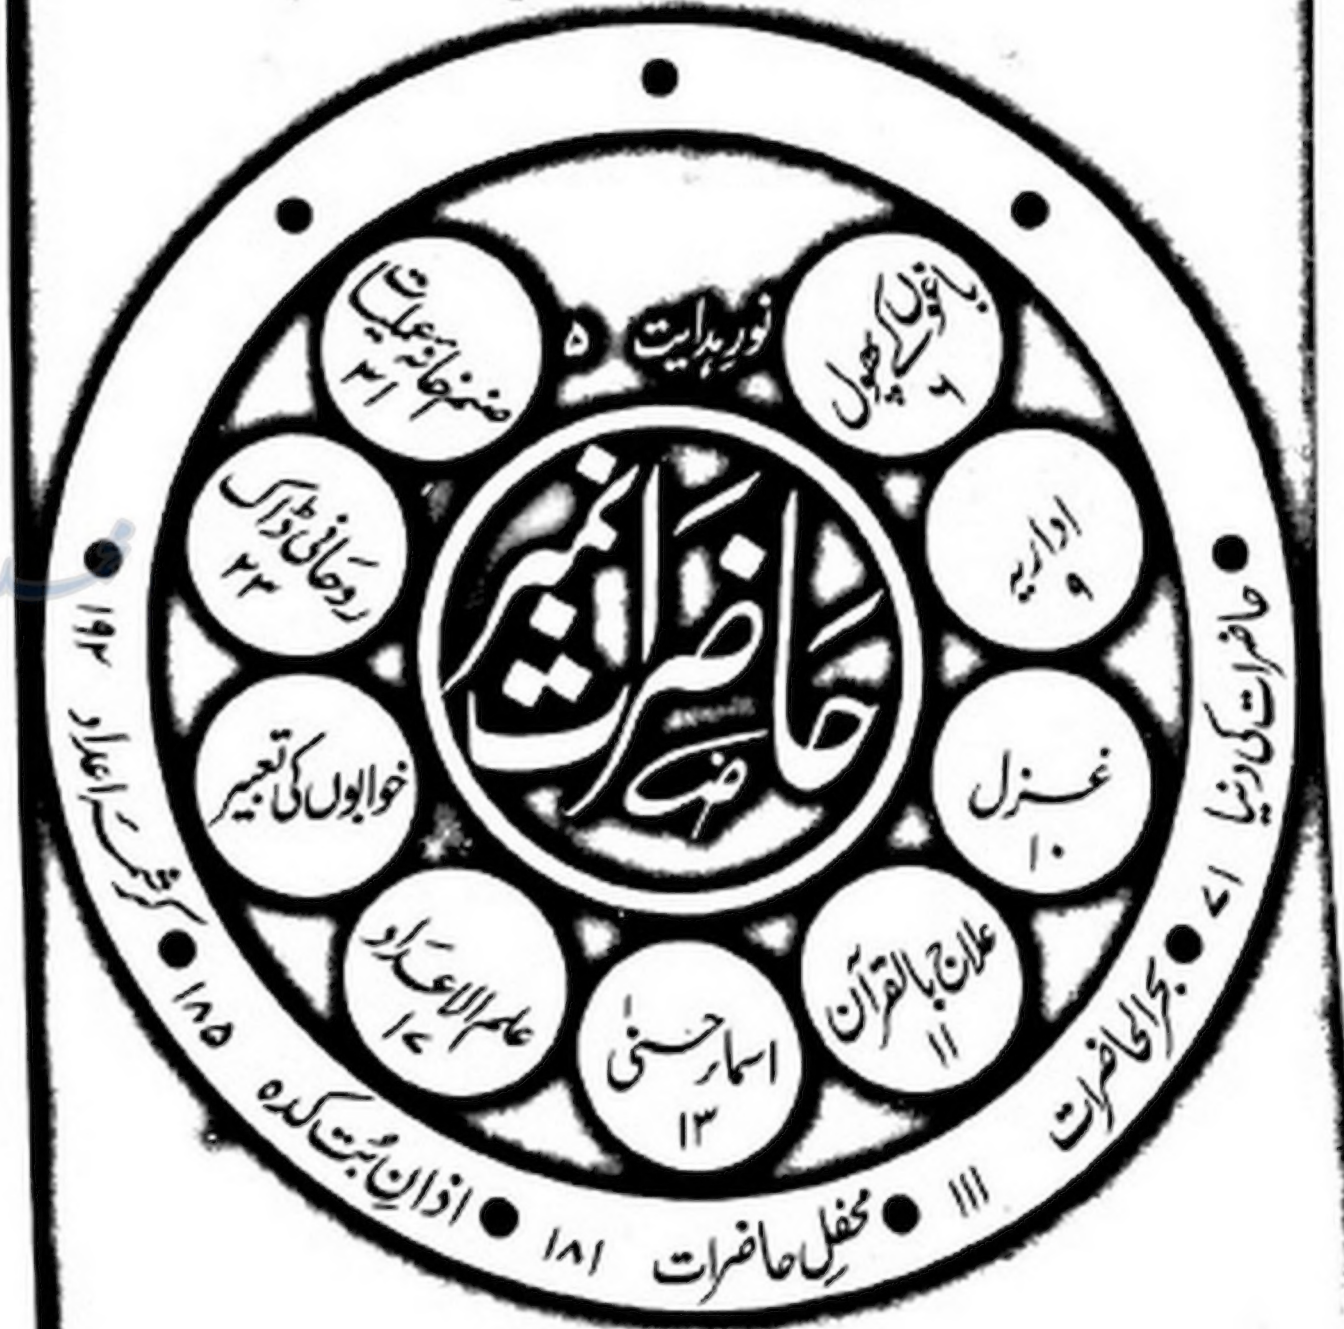 حاضرات نمبر
نورِ ہدایت ۵
باغوں کے پھول
۶
اداریہ
۹
غزل
۱۰
علاج بالقرآن
۱۱
اسماء حسنیٰ
۱۳
علم الاعداد
۱۷
خوابوں کی تعبیر
روحانی ڈاک
۲۳
صنم خانہ عملیات
۳۱
حاضرات کی دنیا ۷۱
بحر الحاضرات ۱۱۱
محفلِ حاضرات ۱۸۱
اذانِ بُت کدہ ۱۸۵
کرشمہ اعداد ۱۹۲